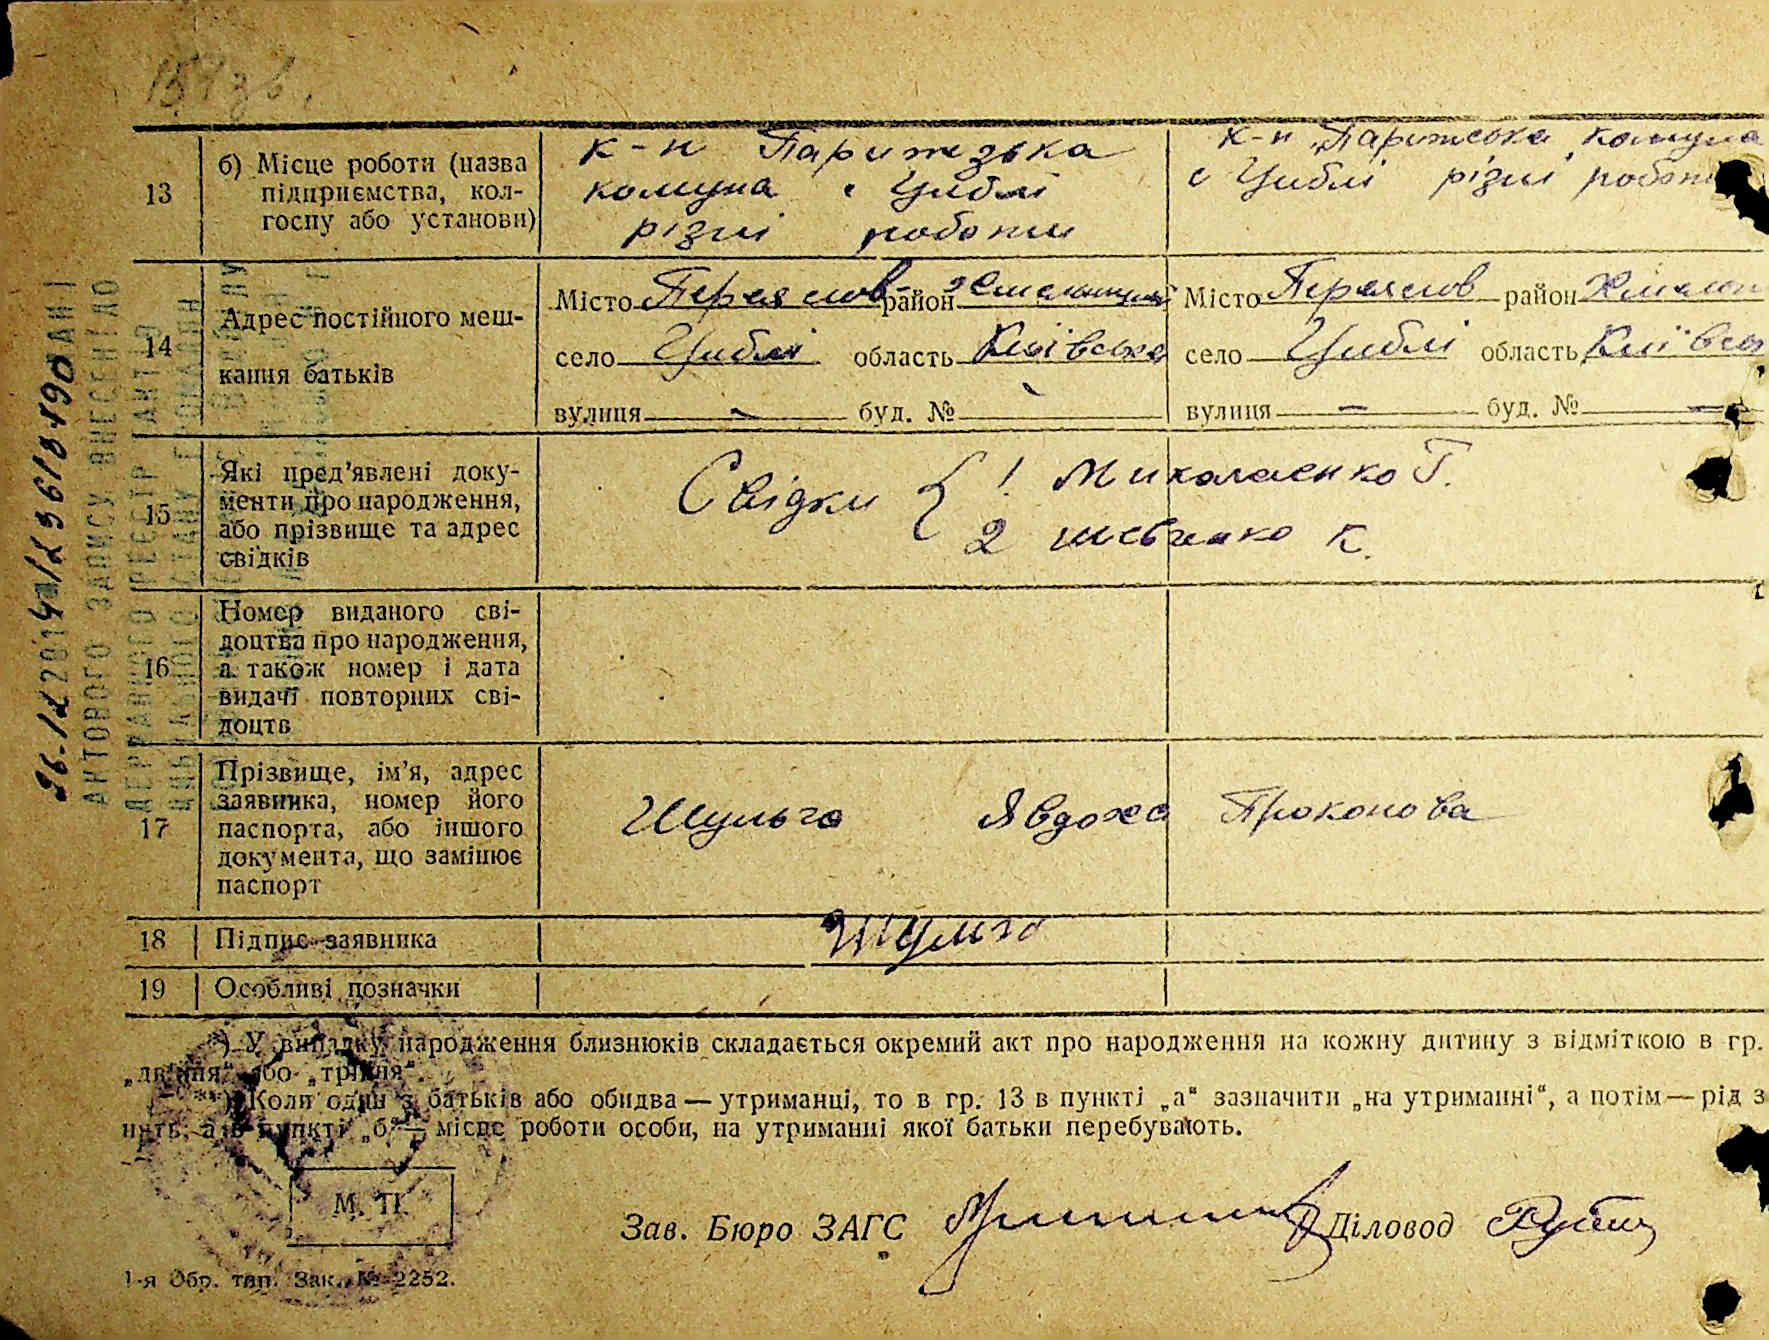 13
б) Місце роботи (назва
підприємства, кол-
госпу або установи)
к-п Парижзька
комуна с Циблі
різні роботи
к-п Парижська комуна
с Циблі різні роботи
14
Адрес постійного меш-
кання батьків
Місто Переяслов район Хмельницький
село Циблі область Київська
вулиця — буд. №
Місто Переяслов район Хмельн
село Циблі область Київсь
вулиця — буд. № —
15
Які пред’явлені доку-
менти про народження,
або прізвище та адрес
свідків
Свідки { 1 Миколаенко Г.
2 Шевченко К.
16
Номер виданого сві-
доцтва про народження,
а також номер і дата
видачі повторних сві-
доцтв
17
Прізвище, ім’я, адрес
заявника, номер його
паспорта, або іншого
документа, що замінює
паспорт
Шульга Явдоха Прокопова
18 Підпис заявника
Шульга
19 Особливі позначки
*) У випадку народження близнюків складається окремий акт про народження на кожну дитину з відміткою в гр.
„двійня“ або „трійня“.
**) Коли один з батьків або обидва — утриманці, то в гр. 13 в пункті „а“ зазначити „на утриманні“, а потім — рід з
нять, а в пункті „б“ — місце роботи особи, на утриманні якої батьки перебувають.
М. П.
Зав. Бюро ЗАГС
Діловод
1-я Обр. тип. Зак. № 2252.
АКТОВОГО ЗАПИСУ ВНЕСЕНІ ДО
ДЕРЖАВНОГО РЕЄСТРУ АКТІВ
ЦИВІЛЬНОГО СТАНУ ГРОМАДЯН